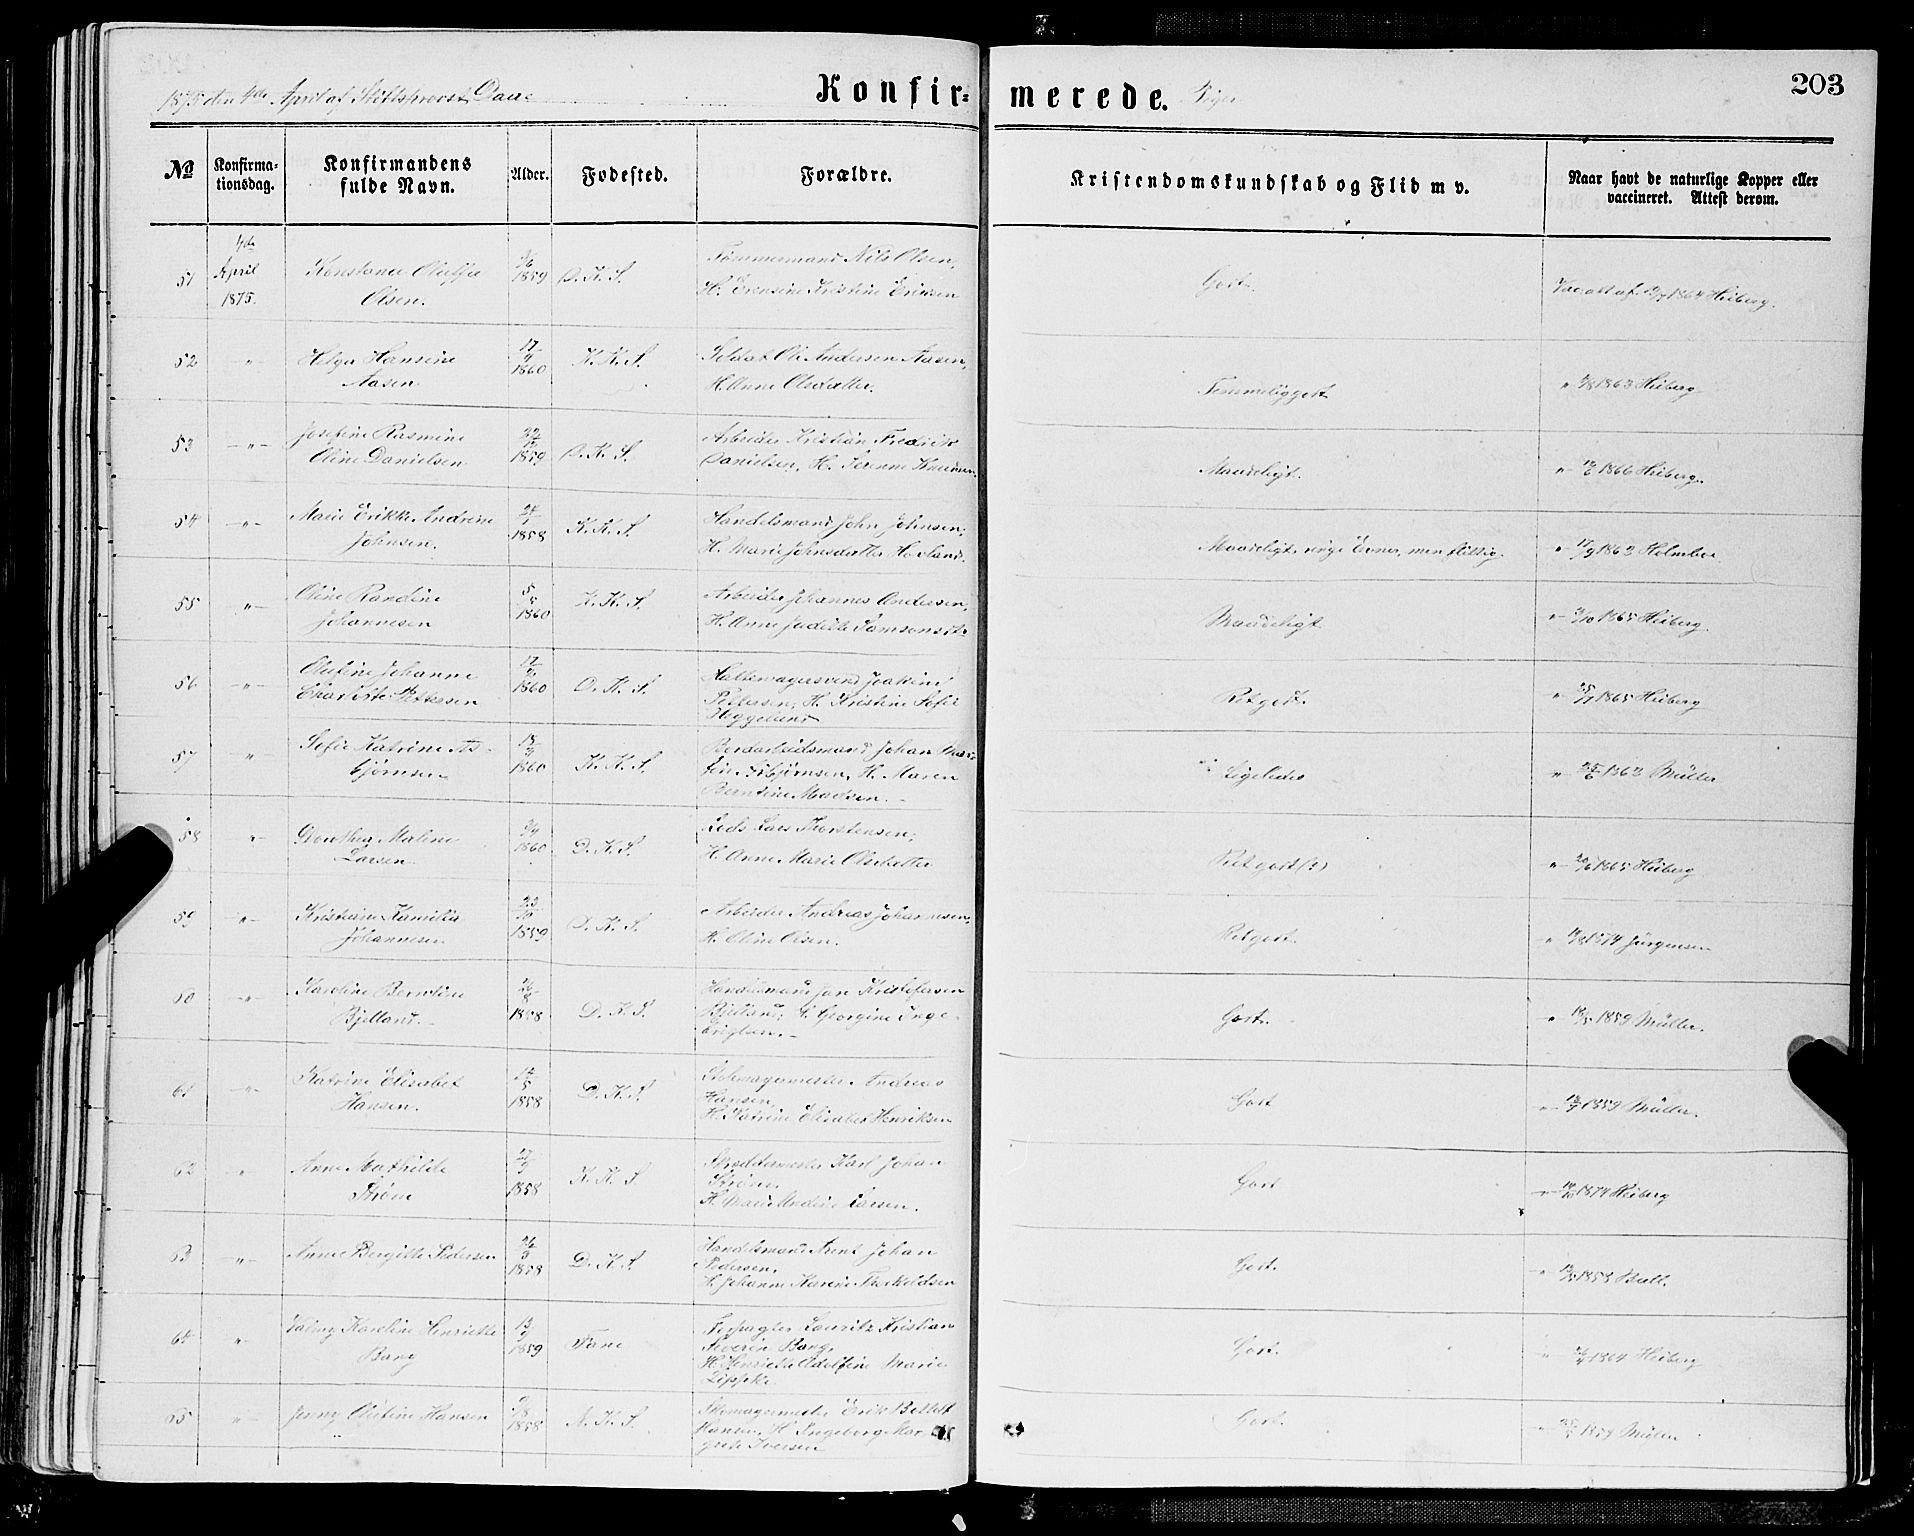 1875 den 4de April af Stiftsprovst Daae
Konfir=
merede. Piger
203
No
Konfirma-
tionsdag.
Konfirmandens
fulde Navn.
Alder.
Fødested.
Forældre.
Kristendomskundskab og Flid m v.
Naar havt de naturlige Kopper eller
vaccineret. Attest derom.
51
4de
April
1875.
Olsen.
1859
D. K. S.
Tømmermand Nils Olsen,
Godt.
1864 Heiberg.
52
Helga Hansine
Aasen
17
1860
K. K. S.
Soldat Ole Andersen Aasen,
H. Anne Olsdatter.
Temmelig godt
1863 Heiberg
53
Josefine Rasmine
Oline Danielsen
1859
D. K. S.
Arbeider Kristian Fredrik
Danielsen, H. Serenne
Maadeligt.
1866 Heiberg
54
Marie Erikke Andrine
Johnsen.
24
1858
K. K. S.
Handelsmand John Johnsen,
H. Marie Johnsdatter Hovland.
Maadeligt, ringe Evner, men flittig.
1862 Holmboe
55
Oline Randine
Johannesen
5
1860
K. K. S.
Arbeider Johannes Andersen,
H. Anne Judithe Samsonsdtr
Maadeligt
1865 Heiberg
56
Olufine Johanne
Charlotte Pettersen
17
1860
D. K. S.
Joakim
Pettersen, H. Kristine Sofie
Heggelund
Ret godt.
1865 Heiberg
57
Sofie Katrine As-
bjørnsen
1860
K. K. S.
Bordarbeidsmand Johan Mar-
tin Asbjørnsen, H. Maren
Berntine Madsen.
Ligeledes
1862 Müller
58
Dorothea Maline
Larsen
1860
D. K. S.
Lods Lars Thorstensen,
H. Anne Marie Olsdatter
Ret godt (?)
1865 Heiberg
59
Kristiane Kamilla
Johannesen
1859
D. K. S.
Arbeider Andreas Johannesen,
H. Oline Olsen.
Ret godt.
1874 Jürgensen
60
Karoline Berntine
Bjelland.
1858
D. K. S.
Handelsmand Jan Kristofersen
Bjelland, H. Georgine Inge-
brigtsen.
Godt.
1859 Müller.
61
Katrine Elisabet
Hansen.
1858
D. K. S.
Stolemagermester Andreas
Hansen,
H. Katrine Elisabet Henriksen
Godt
1859 Müller.
62
Anne Mathilde
Strøm
27
1858
K. K. S.
Skræddermester Karl Johan
Strøm,
H. Marie Andrine Larsen.
Godt
1874 Heiberg
63
Anne Bergitte Pedersen
26
1858
D. K. S.
Handelsmand Arent Johan
Pedersen,
H. Johanne Karine Thorkildsen
Godt.
1858 Bull.
64
Valborg Karoline Henriette
Bang
13
1859
Fane
Forpagter Lauritz Kristian
Severin Bang,
H. Henriette Adolfine Marie
Lippke
Godt.
1864 Heiberg
65
Jenny Olufine Hansen
1858
N. K. S.
Skomagermester Erik
Hansen, H. Ingeborg Mar-
grete Iversen
Godt.
1859 Müller